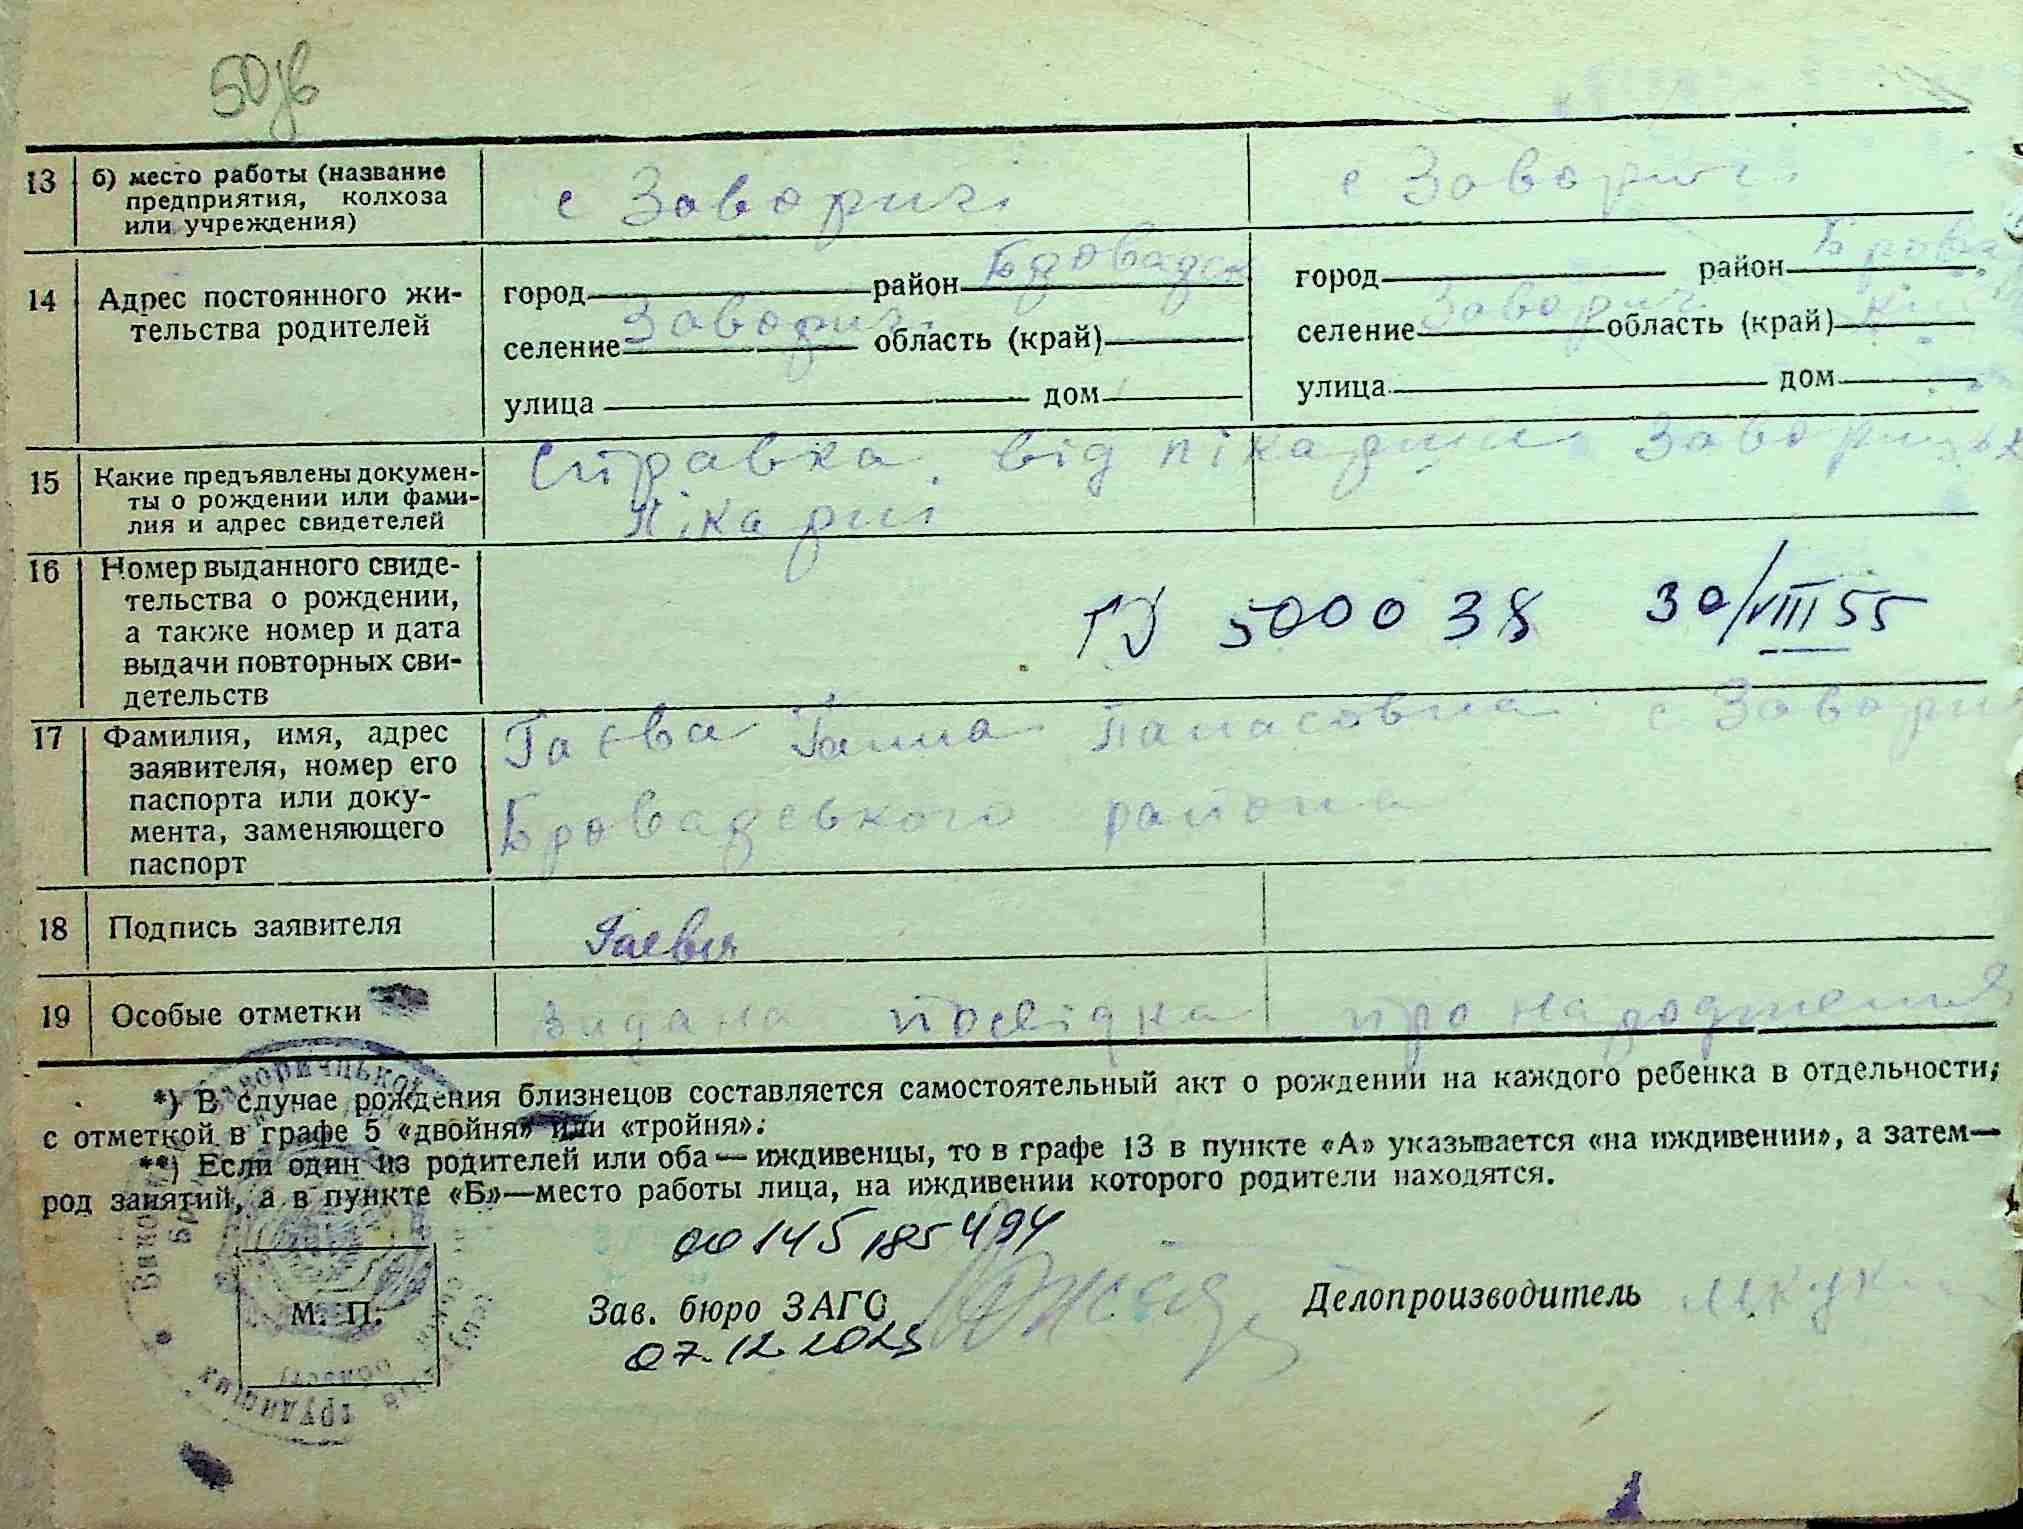 50зв
13 б) место работы (название
предприятия, колхоза
или учреждения)
с Заворичі
с Заворичі
14 Адрес постоянного жи-
тельства родителей
город район Бровадськ
селение Заворичі область (край)
улица дом
город район Брова
селение Заворичі область (край)
улица дом
15 Какие предъявлены докумен-
ты о рождении или фами-
лия и адрес свидетелей
Справка від лікарні
Лікарні
16 Номер выданного свиде-
тельства о рождении,
а также номер и дата
выдачи повторных сви-
детельств
500038 30/VIII 55
17 Фамилия, имя, адрес
заявителя, номер его
паспорта или доку-
мента, заменяющего
паспорт
Гаєва Ганна Панасовна с Завори
Бровадського района
18 Подпись заявителя
Гаева
19 Особые отметки
видана посвідка про народження
*) В случае рождения близнецов составляется самостоятельный акт о рождении на каждого ребенка в отдельности,
с отметкой в графе 5 «двойня» или «тройня».
**) Если один из родителей или оба — иждивенцы, то в графе 13 в пункте «А» указывается «на иждивении», а затем—
род занятий, а в пункте «Б»—место работы лица, на иждивении которого родители находятся.
00145185494
М. П.
Зав. бюро ЗАГС
Делопроизводитель
07.12.2023